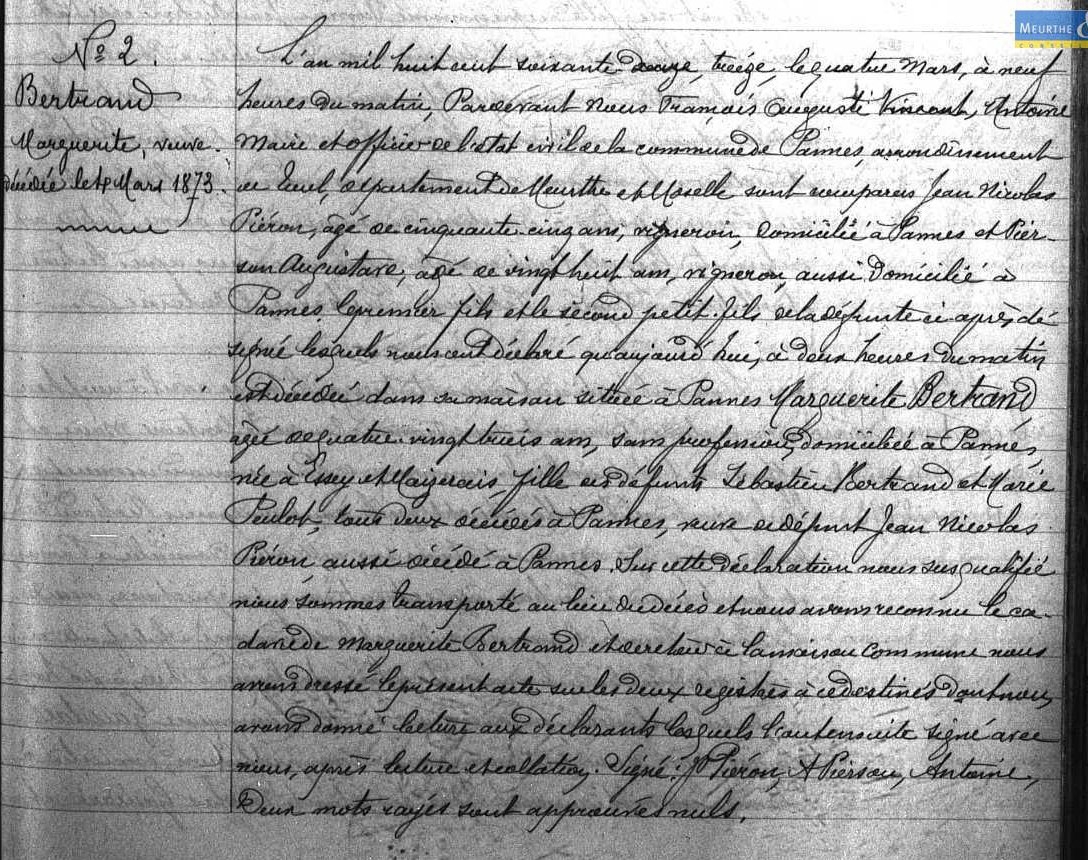 MEURTHE
CONSEIL
N° 2.
Bertrand
Marguerite, veuve.
décédée le 4 Mars 1873.
L'an mil huit cent soixante douze, treize, le quatre Mars, à neuf
heures du matin, Pardevant nous François Auguste Vincent, Antoine
Maire et officier de l'état civil de la commune de Pannes, arrondissement
de Toul, département de Meurthe et Moselle sont comparus Jean Nicolas
Piéron, âgé de cinquante-cinq ans, vigneron, domicilié à Pannes et Pier-
son Augustave, âgé de vingt huit ans, vigneron, aussi domicilié à
Pannes, le premier fils et le second petit-fils de la défunte ci après dé
signé lesquels nous ont déclaré qu'aujourd'hui, à deux heures du matin
est décédée dans sa maison située à Pannes Marguerite Bertrand,
âgée de quatre-vingt trois ans, sans profession, domiciliée à Pannes,
née à Essey et Maizerais, fille des défunts Sébastien Bertrand et Marie
Peulot, tous deux décédés à Pannes, veuve de défunt Jean Nicolas
Piéron, aussi décédé à Pannes. Sur cette déclaration nous susqualifié
nous sommes transporté au lieu du décès et nous avons reconnu le ca-
davre de Marguerite Bertrand et de retour à la maison commune nous
avons dressé le présent acte sur les deux registres à ce destinés dont nous
avons donné lecture aux déclarants lesquels l'ont ensuite signé avec
nous, après lecture et collation. Signé: Piéron, A Pierson, Antoine,
Deux mots rayés sont approuvés nuls.